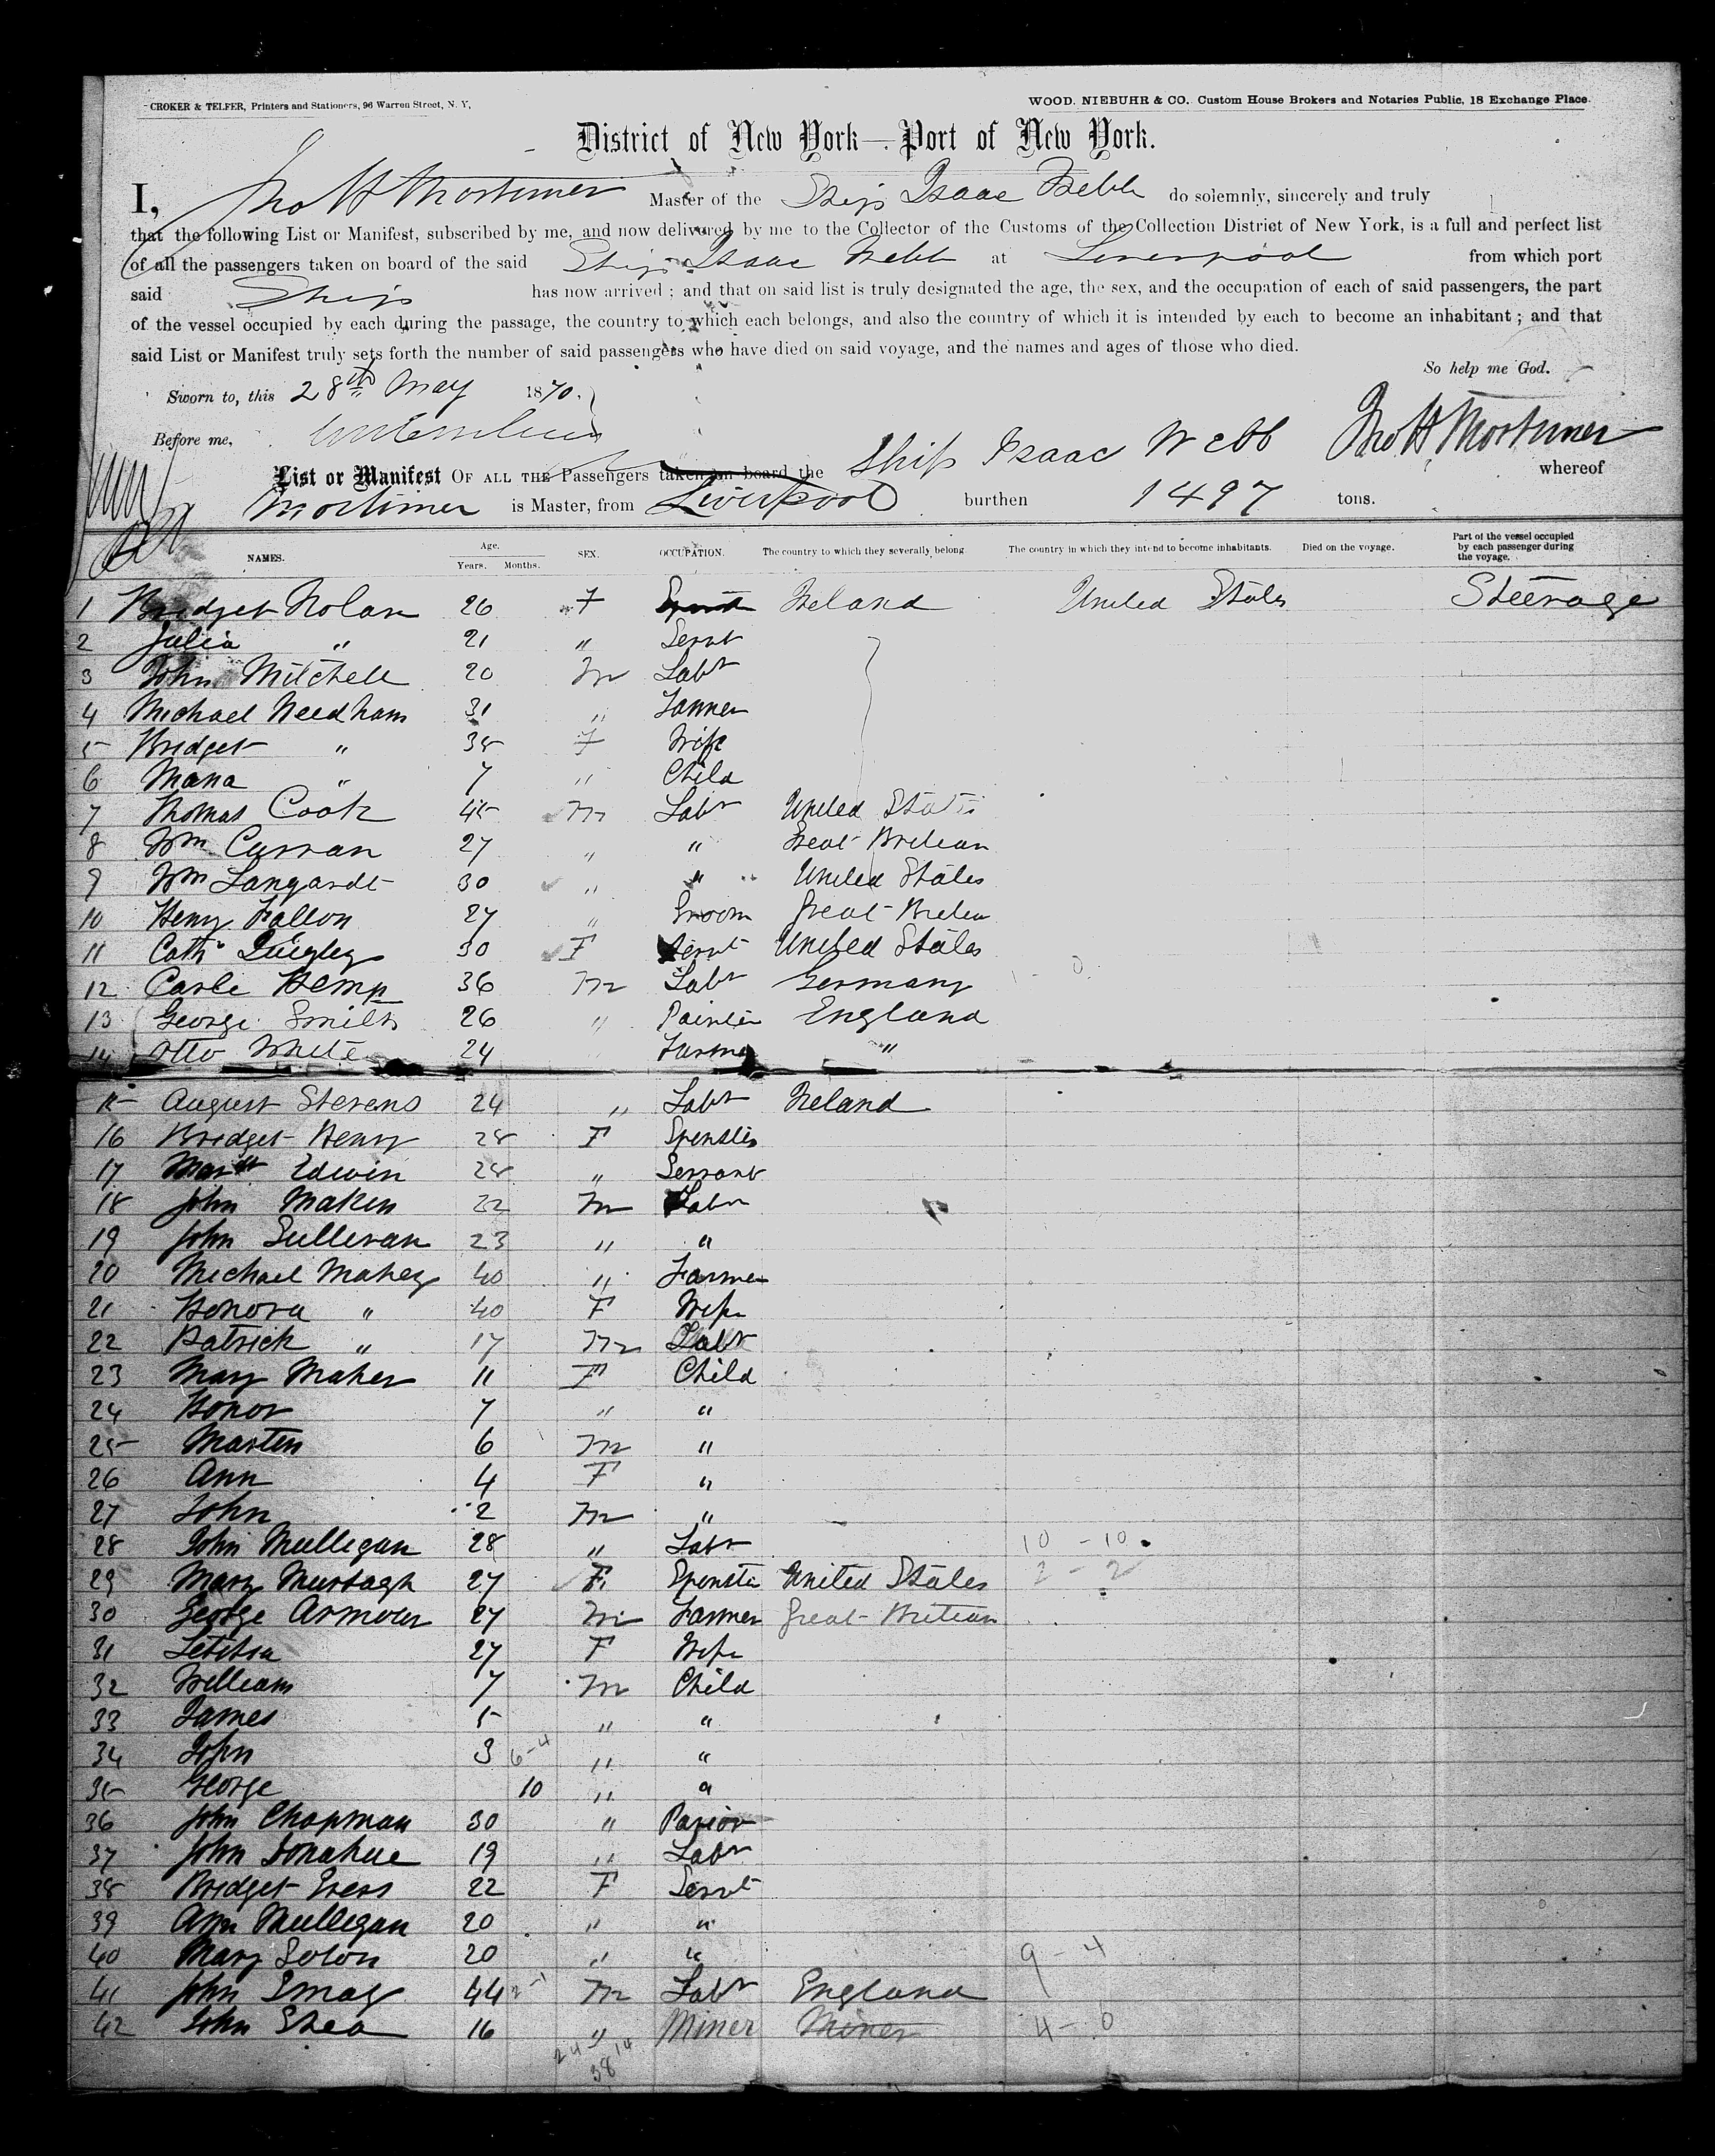 CROKER & TELFER, Printers and Stationers, 96 Warren Street, N. Y.
WOOD, NIEBUHR & CO. Custom House Brokers and Notaries Public, 18 Exchange Place.
District of New York—Port of New York.
I, Jno H Mortimer Master of the Ship Isaac Webb do solemnly, sincerely and truly
that the following List or Manifest, subscribed by me, and now delivered by me to the Collector of the Customs of the Collection District of New York, is a full and perfect list
of all the passengers taken on board of the said Ship Isaac Webb at Liverpool from which port
said Ship has now arrived ; and that on said list is truly designated the age, the sex, and the occupation of each of said passengers, the part
of the vessel occupied by each during the passage, the country to which each belongs, and also the country of which it is intended by each to become an inhabitant ; and that
said List or Manifest truly sets forth the number of said passengers who have died on said voyage, and the names and ages of those who died.
So help me God.
Sworn to, this 28th May 1870.
Before me,
Jno H Mortimer
List or Manifest OF ALL THE Passengers taken on board the Ship Isaac Webb whereof
Mortimer is Master, from Liverpool burthen 1497 tons.
NAMES. Age. Years. Months. SEX. OCCUPATION. The country to which they severally belong. The country in which they intend to become inhabitants. Died on the voyage. Part of the vessel occupied by each passenger during the voyage.
1 Bridget Nolan 26 F Ireland United States Steerage
2 Julia " 21 " Servt
3 John Mitchell 20 M Labr
4 Michael Needham 31 "
5 Bridget " 35 F Wife
6 Maria " 7 " Child
7 Thomas Cook 45 M Labr United States
8 Wm Curran 27 " " Great Britean
9 Wm Langardt 30 " " United States
10 Henry Fallon 27 " Groom Great Britean
11 Cath Quigley 30 F Servt United States
12 Carle Hemp 36 M Labr Germany
13 George Smith 26 " Painter England
14 Otto White 24 Farmer "
15 August Stevens 24 " Labr Ireland
16 Bridget Henry 28 F Spinster
17 Margt Edwin 28 " Servant
18 John Maken 22 M Labr
19 John Sullivan 23 " "
20 Michael Maher 40 " Farmer
21 Honora " 40 F Wife
22 Patrick " 17 M Labr
23 Mary Maher 11 F Child
24 Honor 7 " "
25 Marten 6 M "
26 Ann 4 F "
27 John 2 M "
28 John Mulligan 28 " Labr 10 - 10
29 Mary Murtagh 27 F Spinster United States 2 - 2
30 George Armour 27 M Farmer Great Britean
31 Letitia 27 F Wife
32 William 7 M Child
33 James 5 " "
34 John 3 6-4 " "
35 George 10 " "
36 John Chapman 30 "
37 John Donahue 19 " Labr
38 Bridget 22 F Servt
39 Ann Mulligan 20 " "
40 Mary Solon 20 " " 9 - 4
41 John 44 M Labr England
42 John Shea 16 " Miner Miner 4 - 6
24 14
38